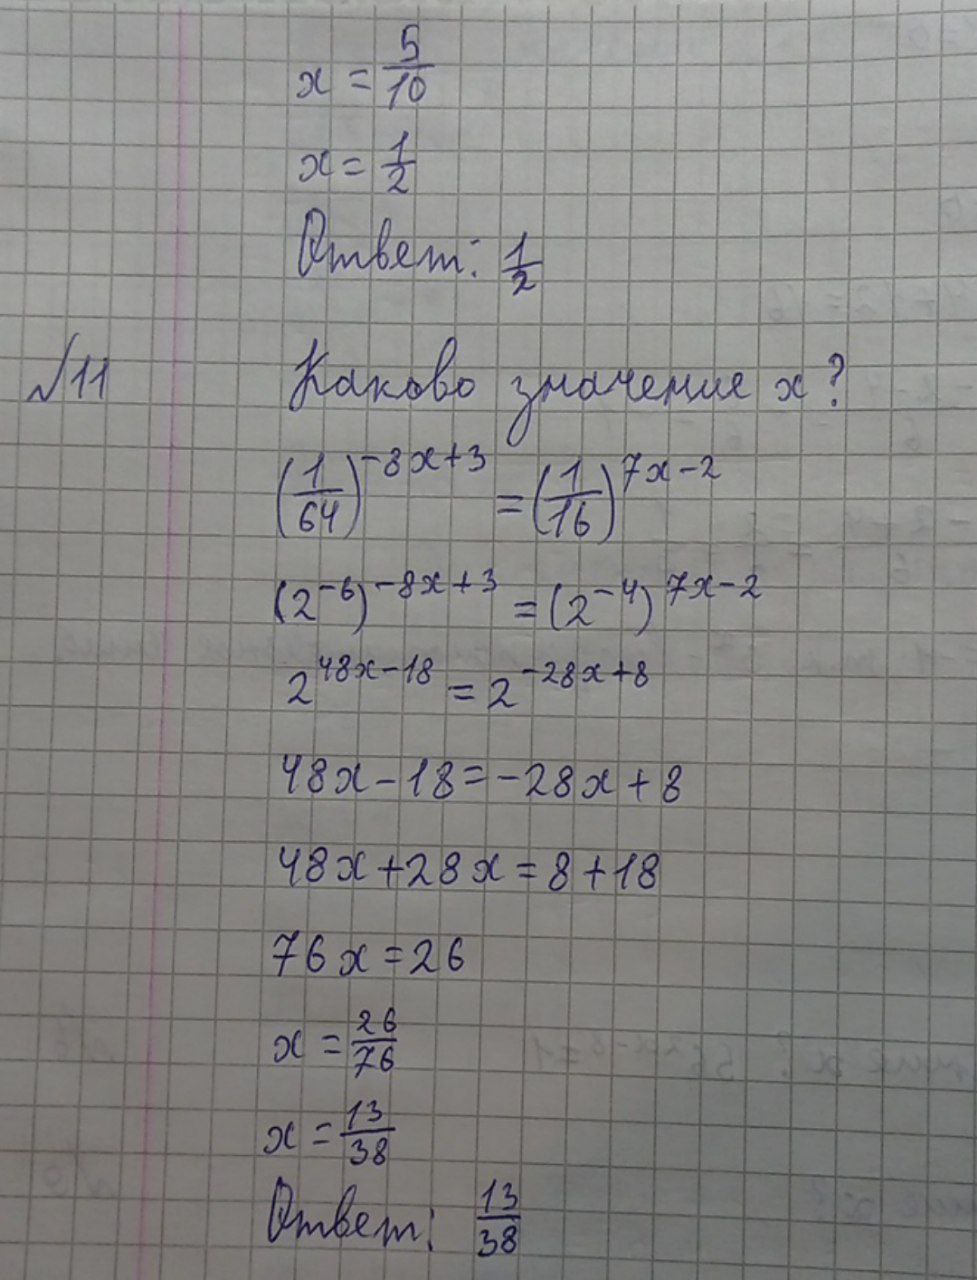 x = 5/10
x = 1/2
Ответ: 1/2
№11 Каково значение x?
(1/64)^(-8x+3) = (1/16)^(7x-2)
(2^(-6))^(-8x+3) = (2^(-4))^(7x-2)
2^(48x-18) = 2^(-28x+8)
48x - 18 = -28x + 8
48x + 28x = 8 + 18
76x = 26
x = 26/76
x = 13/38
Ответ: 13/38